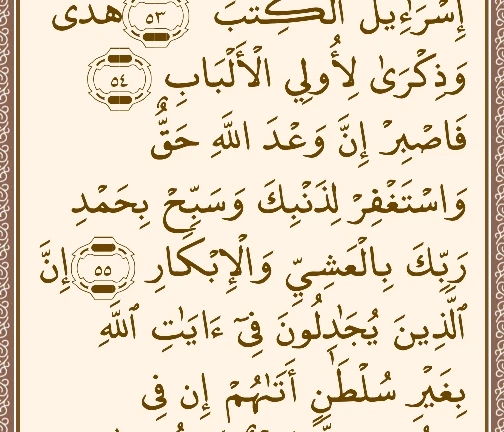 إِسْرَٰٓءِيلَ ٱلْكِتَٰبَ ٥٣ هُدًى
وَذِكْرَىٰ لِأُولِي الْأَلْبَابِ ٥٤
فَاصْبِرْ إِنَّ وَعْدَ اللَّهِ حَقٌّ
وَاسْتَغْفِرْ لِذَنْبِكَ وَسَبِّحْ بِحَمْدِ
رَبِّكَ بِالْعَشِيِّ وَالْإِبْكَارِ ٥٥ إِنَّ
ٱلَّذِينَ يُجَٰدِلُونَ فِىٓ ءَايَٰتِ ٱللَّهِ
بِغَيْرِ سُلْطَٰنٍ أَتَىٰهُمْ إِن فِى